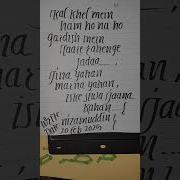 Kal Khel mein
ham ho na ho
gardish mein
Taare rahenge
Sadaa
Jina Yahan
marna Yahan,
Iske Siwa Jaana
Kahan
nizamuddin
20 Feb 2026